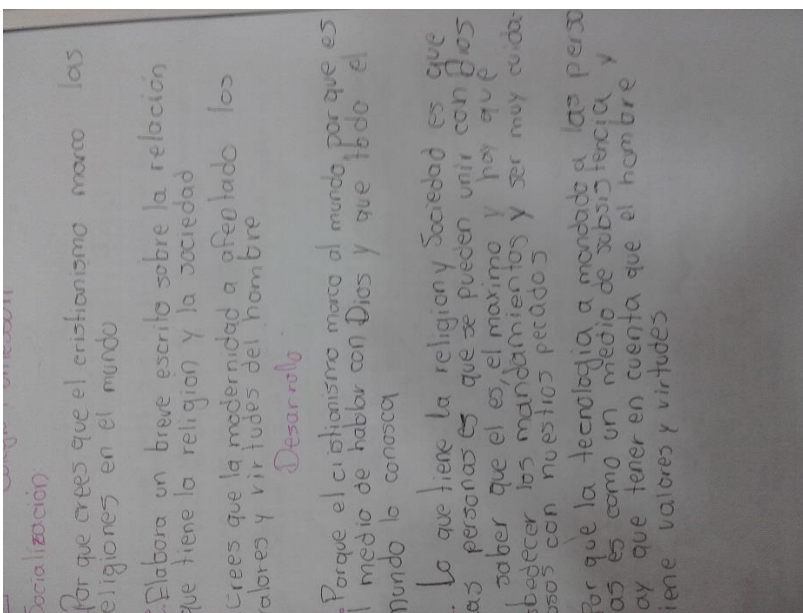 Socialización
Por que crees que el cristianismo marco las
eligiones en el mundo
Elabora un breve escrito sobre la relación
que tiene la religion y la sociedad
Crees que la modernidad a afentado los
alores y virtudes del hombre
Desarrollo
Porque el cristianismo marco al mundo, por que es
l medio de hablar con Dios y que todo el
mundo lo conosca
Lo que tiene la religion y Sociedad es que
as personas es que se pueden unir con Dios
saber que el es, el maximo y hay que
obedecer los mandamientos y ser muy cuida-
osos con nuestros pecados
Por que la tecnologia a mandado a las perso
as es como un medio de subsistencia y
ay que tener en cuenta que el hombre
iene valores y virtudes